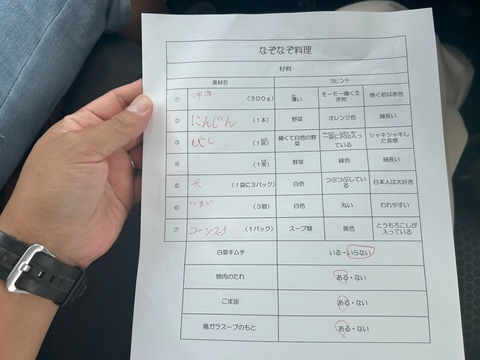 なぞなぞ料理
材料
食材名 3ヒント
① 牛肉 (300g) 薄い モーモー鳴く生き物 焼く前は赤色
② にんじん (1本) 野菜 オレンジ色 細長い
③ もやし (1袋) 細くて白色の野菜 一袋に沢山入っている シャキシャキした食感
④ (1束) 野菜 緑色 細長い
⑤ 米 (1袋に3パック) 白色 つぶつぶしている 日本人は大好き
⑥ たまご (3個) 白色 丸い われやすい
⑦ コーンスープ (1パック) スープ類 黄色 とうもろこしが入っている
白菜キムチ いる・いらない
焼肉のたれ ある・ない
ごま油 ある・ない
鳥ガラスープのもと ある・ない